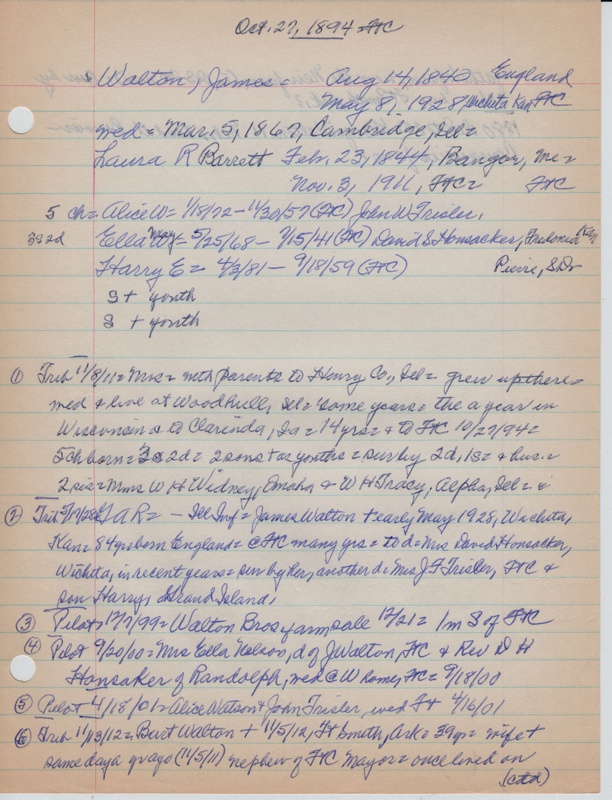 Oct. 27, 1894 FtC
Walton, James = Aug 14, 1840 England
May 8, 1928, Wichita Kan FtC
wed = Mar. 5, 1867, Cambridge, Ill =
Laura R Barrett Feb. 23, 1844, Bangor, Me =
Nov. 3, 1911, FtC = FtC
5 ch = Alice W = 1/18/72 - 11/30/57 (FtC) John W Trisler,
3s 2d Ella May = 5/25/68 - 7/15/41 (FtC) David S Honsacker, Fredonia Kan
Harry E = 4/3/81 - 9/18/59 (FtC) Pierre, S.D.
S + youth
S + youth
① Trib 11/8/11 = Mrs = with parents to Henry Co., Ill = grew up there =
wed & live at Woodhull, Ill = some years = the a year in
Wisconsin & to Clarinda, Ia = 14 yrs = & to FtC 10/27/94 =
5 ch born = 3s 2d = 2 sons + as youths = sur by 2d, 1s = & hus. =
2 sis = Mmes W H Widney, Omaha & W H Tracy, Alpha, Ill =
② Trib 5/17/28 GAR = - Ill Inf = James Walton + early May 1928, Wichita,
Kan = 84 yrs born England = @ FtC many yrs = to d = Mrs David Honsacker,
Wichita, in recent years = sur by her, another d = Mrs J F Trisler, FtC &
son Harry, Grand Island,
③ Pilot 12/7/99 = Walton Bros farm sale 12/21 = 1m S of FtC
④ Pilot 9/20/00 = Mrs Ella Nelson, d of J Walton, FtC & Rev D H
Honsaker of Randolph, wed @ W home, FtC = 9/18/00
⑤ Pilot 4/18/01 = Alice Watson & John Trisler, wed Ft 4/16/01
⑥ Trib 11/13/12 = Burt Walton + 11/5/12, Ft Smith, Ark = 39 yrs = wife +
same day a yr ago (11/5/11) nephew of FtC Mayor = once lived on
(ctd)